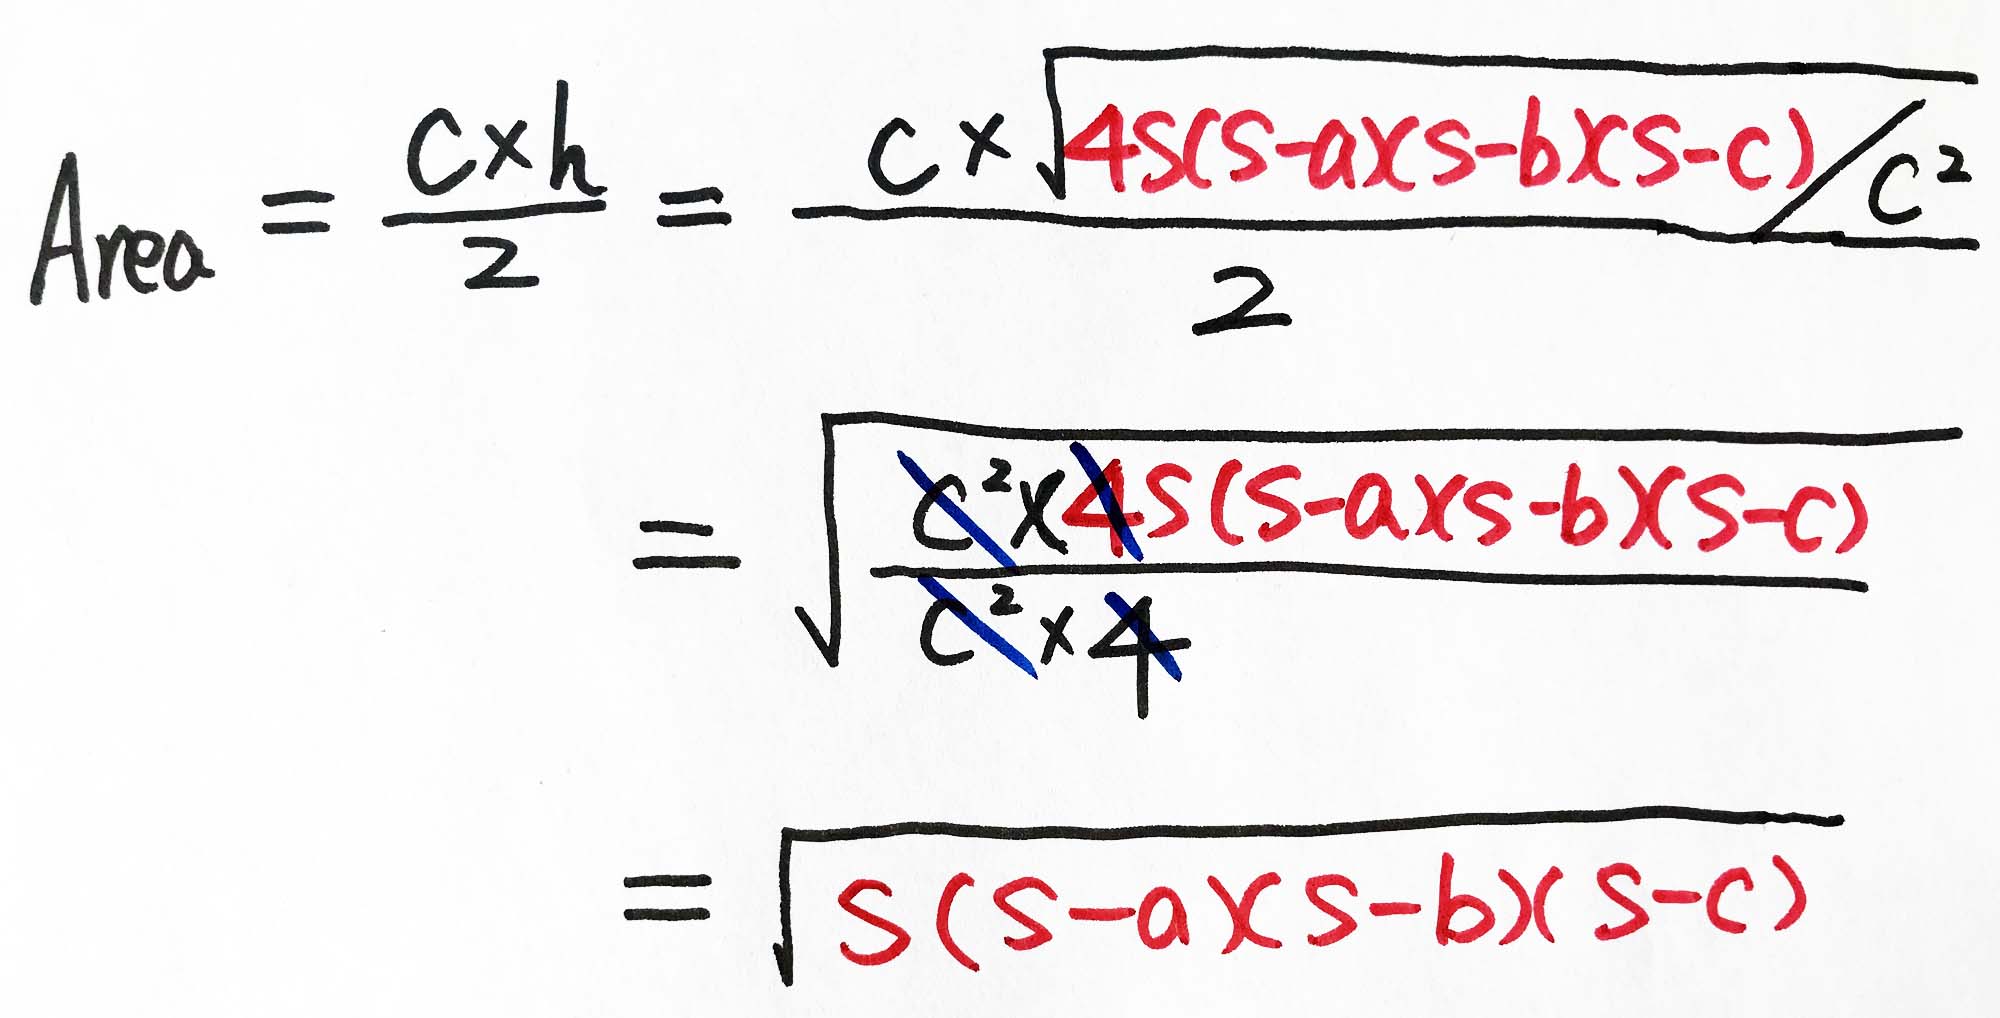 Area = c×h/2 = c×√(4s(s-a)(s-b)(s-c)/c²)/2
= √((c²×4s(s-a)(s-b)(s-c))/(c²×4))
= √(s(s-a)(s-b)(s-c))